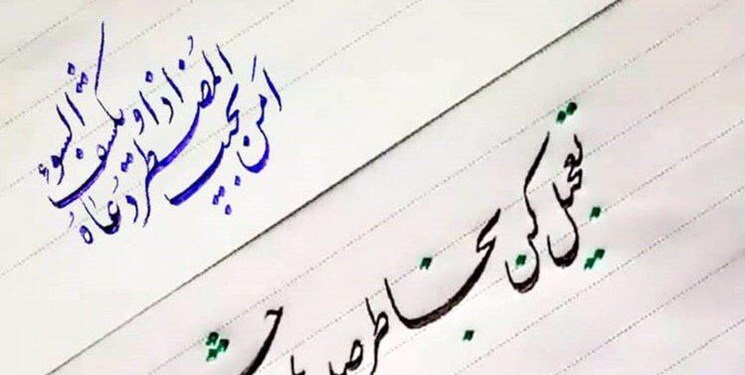 امن یجیب المضطر اذا دعاه و یکشف السوء
تعجیل کن بخاطر صدها